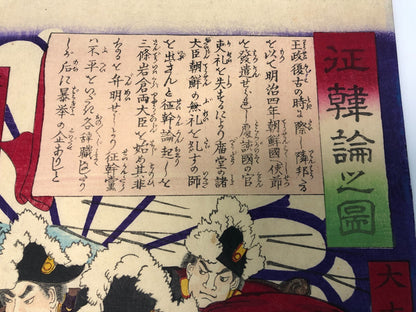 征韓論之圖
王政復古の時に際し隣邦なる
を以て明治四年朝鮮國へ使節
を發遣せらるゝに慶諸國の官
吏礼を失するにより庿堂の諸
大臣朝鮮の無礼を糺すの師
を出さんと征韓論起しを
三條岩倉両大臣を始め其非
なるを弁明せしより征韓黨
ハ不平をいだき各辞職し
后に暴挙の
大